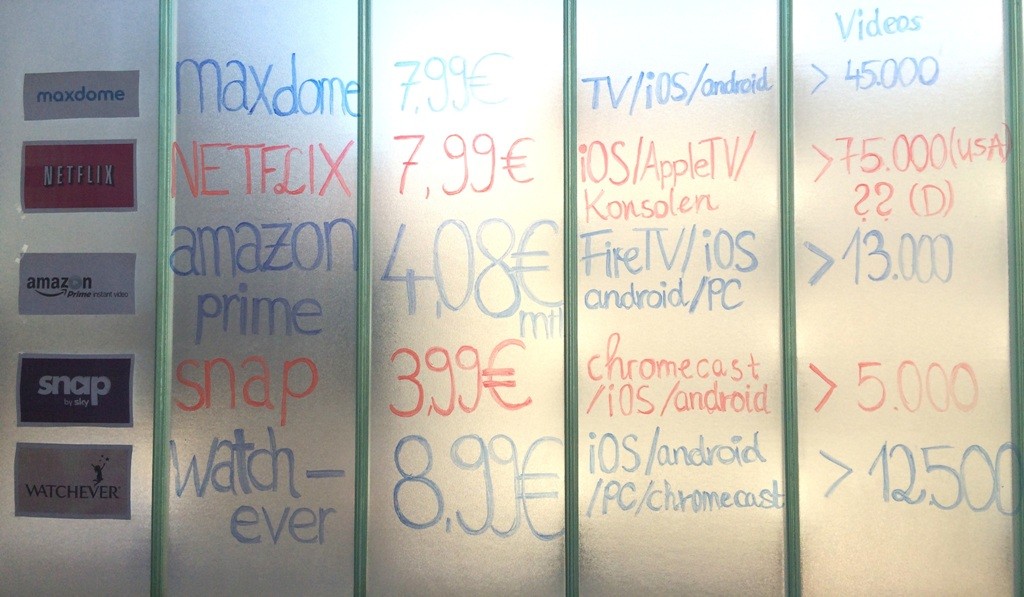 Videos
maxdome maxdome 7,99€ TV/iOS/android > 45.000
NETFLIX NETFLIX 7,99€ iOS/AppleTV/ >75.000(USA)
Konsolen ?? (D)
amazon amazon 4,08€ FireTV/iOS >13.000
Prime instant video prime mtl android/PC
snap snap 3,99€ chromecast > 5.000
by sky /iOS/android
WATCHEVER watch- 8,99€ iOS/android > 12,500
ever /PC/chromecast